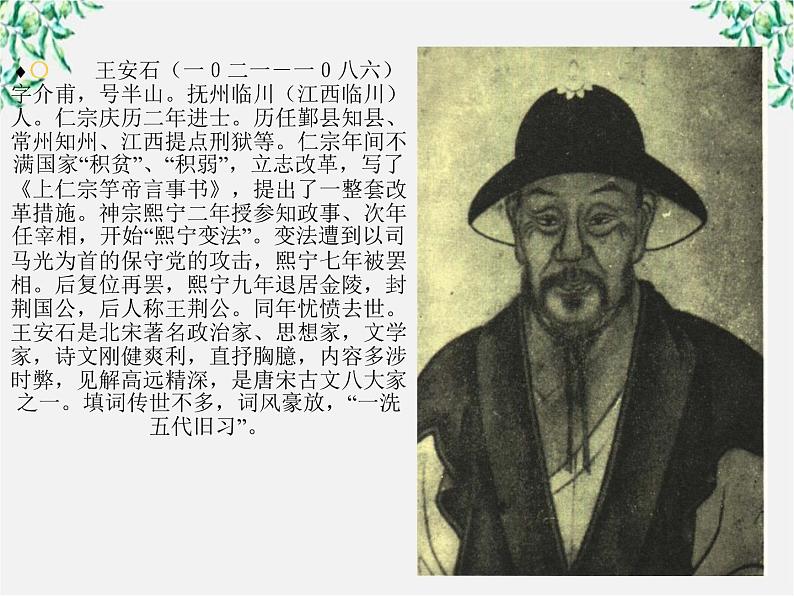 王安石（一0二一－一0八六）
字介甫，号半山。抚州临川（江西临川）
人。仁宗庆历二年进士。历任鄞县知县、
常州知州、江西提点刑狱等。仁宗年间不
满国家“积贫”、“积弱”，立志改革，写了
《上仁宗竽帝言事书》，提出了一整套改
革措施。神宗熙宁二年授参知政事、次年
任宰相，开始“熙宁变法”。变法遭到以司
马光为首的保守党的攻击，熙宁七年被罢
相。后复位再罢，熙宁九年退居金陵，封
荆国公，后人称王荆公。同年忧愤去世。
王安石是北宋著名政治家、思想家，文学
家，诗文刚健爽利，直抒胸臆，内容多涉
时弊，见解高远精深，是唐宋古文八大家
之一。填词传世不多，词风豪放，“一洗
五代旧习”。